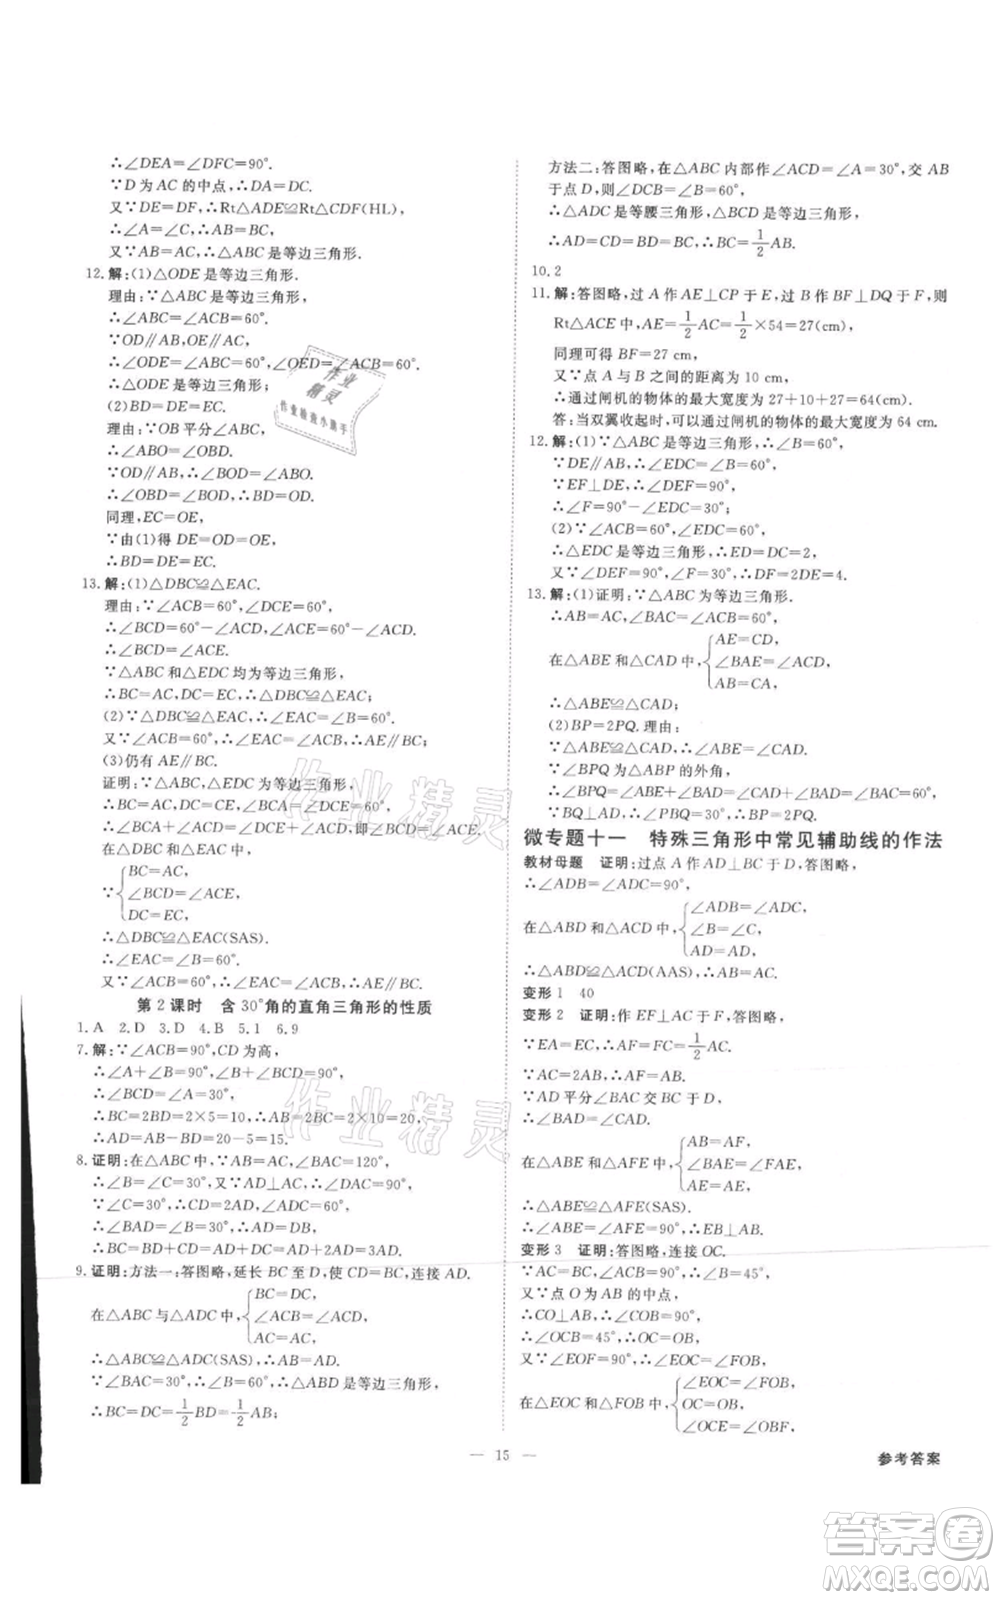 ∴∠DEA=∠DFC=90°.
∵D 为 AC 的中点,∴DA=DC.
又∵DE=DF,∴Rt△ADE≌Rt△CDF(HL),
∴∠A=∠C,∴AB=BC,
又∵AB=AC,∴△ABC 是等边三角形.
12.解:(1)△ODE 是等边三角形.
理由:∵△ABC 是等边三角形,
∴∠ABC=∠ACB=60°.
∵OD∥AB,OE∥AC,
∴∠ODE=∠ABC=60°,∠OED=∠ACB=60°.
∴△ODE 是等边三角形;
(2)BD=DE=EC.
理由:∵OB 平分∠ABC,
∴∠ABO=∠OBD.
∵OD∥AB,∴∠BOD=∠ABO.
∴∠OBD=∠BOD,∴BD=OD.
同理,EC=OE,
∵由(1)得 DE=OD=OE.
∴BD=DE=EC.
13.解:(1)△DBC≌△EAC.
理由:∵∠ACB=60°,∠DCE=60°,
∴∠BCD=60°-∠ACD,∠ACE=60°-∠ACD.
∴∠BCD=∠ACE.
∵△ABC 和△EDC 均为等边三角形,
∴BC=AC,DC=EC,∴△DBC≌△EAC;
(2)∵△DBC≌△EAC,∴∠EAC=∠B=60°.
又∵∠ACB=60°,∴∠EAC=∠ACB,∴AE∥BC;
(3)仍有 AE∥BC.
证明:∵△ABC,△EDC 为等边三角形,
∴BC=AC,DC=CE,∠BCA=∠DCE=60°,
∴∠BCA+∠ACD=∠DCE+∠ACD,即∠BCD=∠ACE.
BC=AC,
∵∠BCD=∠ACE,
DC=EC,
∴△DBC≌△EAC(SAS).
∴∠EAC=∠B=60°.
又∵∠ACB=60°,∴∠EAC=∠ACB,∴AE∥BC.
第 2 课时 含 30°角的直角三角形的性质
1.A 2.D 3.D 4.B 5.1 6.9
7.解:∵∠ACB=90°,CD为高,
∴∠A+∠B=90°,∠BCD+∠B=90°,
∴∠BCD=∠A=30°,
∴BC=2BD=2×5=10,∴AB=2BC=20.
∴AD=AB-BD=20-5=15.
8.证明:在△ABC 中,∵AB=AC,∠BAC=120°,
∴∠B=∠C=30°,又∵AD⊥AC,∴∠DAC=90°.
∵∠C=30°,∴CD=2AD,∠ADC=60°,
∴∠BAD=∠B=30°,∴AD=DB,
∴BC=CD+BD=2AD+AD=3AD.
9.证明:方法一:答图略,延长 BC 至 D,使 CD=BC,连接 AD.
BC=DC,
在△ABC 与△ADC 中,∠ACB=∠ACD,
AC=AC,
∴△ABC≌△ADC(SAS),∴AB=AD.
∵∠BAC=30°,∴∠B=60°,∴△ABD 是等边三角形,
∴BC=DC=1/2BD=1/2AB;
方法二:答图略,在△ABC 内部作∠ACD=∠A=30°,交 AB
于点 D,则∠DCB=∠B=60°,
∴△ADC 是等腰三角形,△BCD 是等边三角形,
∴AD=CD=BD=BC,∴BC=1/2AB.
10.2
11.解:答图略,过 A 作 AE⊥CP 于 E,过 B 作 BF⊥DQ 于 F,则
Rt△ACE 中,AE=1/2AC=1/2×54=27(cm),
同理可得 BF=27 cm,
又∵点 A 与 B 之间的距离为 10 cm,
∴通过闸机的物体的最大宽度为 27+10+27=64(cm).
答:当双翼收起时,可以通过闸机的物体的最大宽度为 64 cm.
12.解:(1)∵△ABC 是等边三角形,∴∠B=60°,
∵DE∥AB,∴∠EDC=∠B=60°,
∵EF⊥DE,∴∠DEF=90°,
∴∠F=90°-∠EDC=30°;
(2)∵∠ACB=60°,∠EDC=60°,
∴△EDC 是等边三角形,∴ED=DC=2,
∵∠DEF=90°,∠F=30°,∴DF=2DE=4.
13.解:(1)证明:∵△ABC 为等边三角形.
∴AB=AC,∠BAC=∠ACB=60°,
AE=CD,
在△ABE 和△CAD 中,∠BAE=∠ACD,
AB=CA,
∴△ABE≌△CAD;
(2)BP=2PQ.理由:
∵△ABE≌△CAD,∴∠ABE=∠CAD,
∵∠BPQ 为△ABP 的外角,
∴∠BPQ=∠ABE+∠BAD=∠CAD+∠BAD=60°.
∵BQ⊥AD,∴∠PBQ=30°,∴BP=2PQ.
微专题十一 特殊三角形中常见辅助线的作法
教材母题 证明:过点 A 作 AD⊥BC 于 D,答图略,
∴∠ADB=∠ADC=90°,
∠ADB=∠ADC,
在△ABD 和△ACD 中,∠B=∠C,
AD=AD,
∴△ABD≌△ACD(AAS),∴AB=AC.
变形 1 40
变形 2 证明:作 EF⊥AC 于 F,答图略,
∵EA=EC,∴AF=FC=1/2AC,
∵AC=2AB,∴AF=AB.
∵AD 平分∠BAC 交 BC 于 D,
∴∠BAD=∠CAD,
AB=AF,
在△ABE 和△AFE 中,∠BAE=∠FAE,
AE=AE,
∴△ABE≌△AFE(SAS),
∴∠ABE=∠AFE=90°,∴EB⊥AB.
变形 3 证明:答图略,连接 OC.
∵AC=BC,∠ACB=90°,∴∠B=45°,
又∵点 O 为 AB 的中点,
∴CO⊥AB,∴∠COB=90°,
∴∠OCB=45°,∴OC=OB,
又∵∠EOF=90°,∴∠EOC=∠FOB,
∠EOC=∠FOB,
在△EOC 和△FOB 中,OC=OB,
∠OCE=∠OBF,
— 15 —
参考答案
作业精灵
作业精灵
作业
精灵
作业检查小助手
答案圈
MXQE.COM